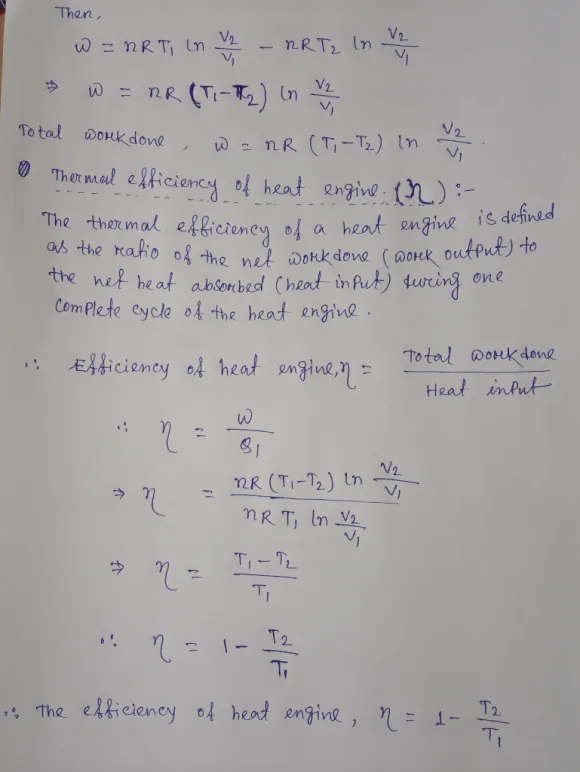 Then,
W = nRT₁ ln V₂/V₁ - nRT₂ ln V₂/V₁
⇒ W = nR (T₁-T₂) ln V₂/V₁
Total workdone, W = nR (T₁-T₂) ln V₂/V₁.
Thermal efficiency of heat engine. (η) :-
The thermal efficiency of a heat engine is defined
as the ratio of the net workdone (work output) to
the net heat absorbed (heat input) during one
complete cycle of the heat engine.
∴ Efficiency of heat engine, η = Total workdone / Heat input
∴ η = W/Q₁
⇒ η = nR (T₁-T₂) ln V₂/V₁ / nRT₁ ln V₂/V₁
⇒ η = T₁-T₂ / T₁
∴ η = 1 - T₂/T₁
∴ The efficiency of heat engine, η = 1 - T₂/T₁